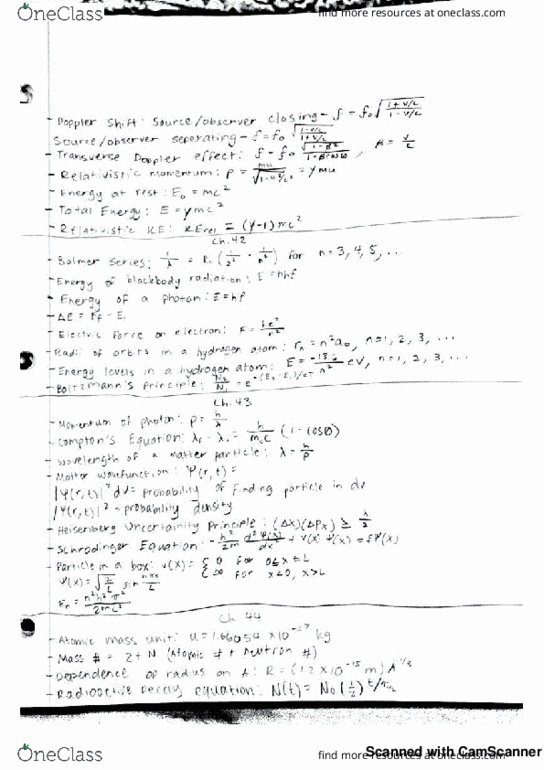 OneClass
find more resources at oneclass.com
- Doppler Shift: Source/observer closing - f = f₀ √((1+v/c)/(1-v/c))
Source/observer seperating - f = f₀ √((1-v/c)/(1+v/c))
- Transverse Doppler effect: f = f₀ √(1-β²)/(1-βcosθ), β = v/c
- Relativistic momentum: p = mu/√(1-u²/c²) = γmu
- Energy at rest: E₀ = mc²
- Total Energy: E = γmc²
- Relativistic KE: KErel = (γ-1)mc²
Ch. 42
- Balmer series: 1/λ = R(1/2² - 1/n²) for n = 3, 4, 5, ...
- Energy of blackbody radiation: E = nhf
- Energy of a photon: E = hf
- ΔE = Ef - Ei
- Electric force on electron: F = ke²/r²
- Radii of orbits in a hydrogen atom: rn = n²a₀, n = 1, 2, 3, ...
- Energy levels in a hydrogen atom: E = -13.6/n² eV, n = 1, 2, 3, ...
- Boltzmann's Principle: N₂/N₁ = e
Ch. 43
- Momentum of photon: p = h/λ
- Compton's Equation: = h/mec (1 - cosθ)
- Wavelength of a matter particle: λ = h/p
- Matter wavefunction: Ψ(r, t) =
|Ψ(r,t)|² dV = probability of finding particle in dV
|Ψ(r,t)|² = probability density
- Heisenberg Uncertainity Principle: (Δx)(Δpx) ≥ ħ/2
- Schrodinger Equation: -ħ²/2m d²Ψ(x)/dx² + V(x) Ψ(x) = EΨ(x)
- Particle in a box: V(x) = { 0 for 0≤x≤L
{ ∞ for x<0, x>L
Ψ(x) = √(2/L) sin nπx/L
En = n²ħ²π²/2mL²
Ch. 44
- Atomic mass unit: u = 1.66054 × 10⁻²⁷ kg
- Mass # = Z + N (Atomic # + neutron #)
- Dependence of radius on A: R = (1.2 × 10⁻¹⁵ m) A^1/3
- Radioactive Decay equation: N(t) = N₀ (1/2)^t/t1/2
OneClass
find more resources at oneclass.com
Scanned with CamScanner